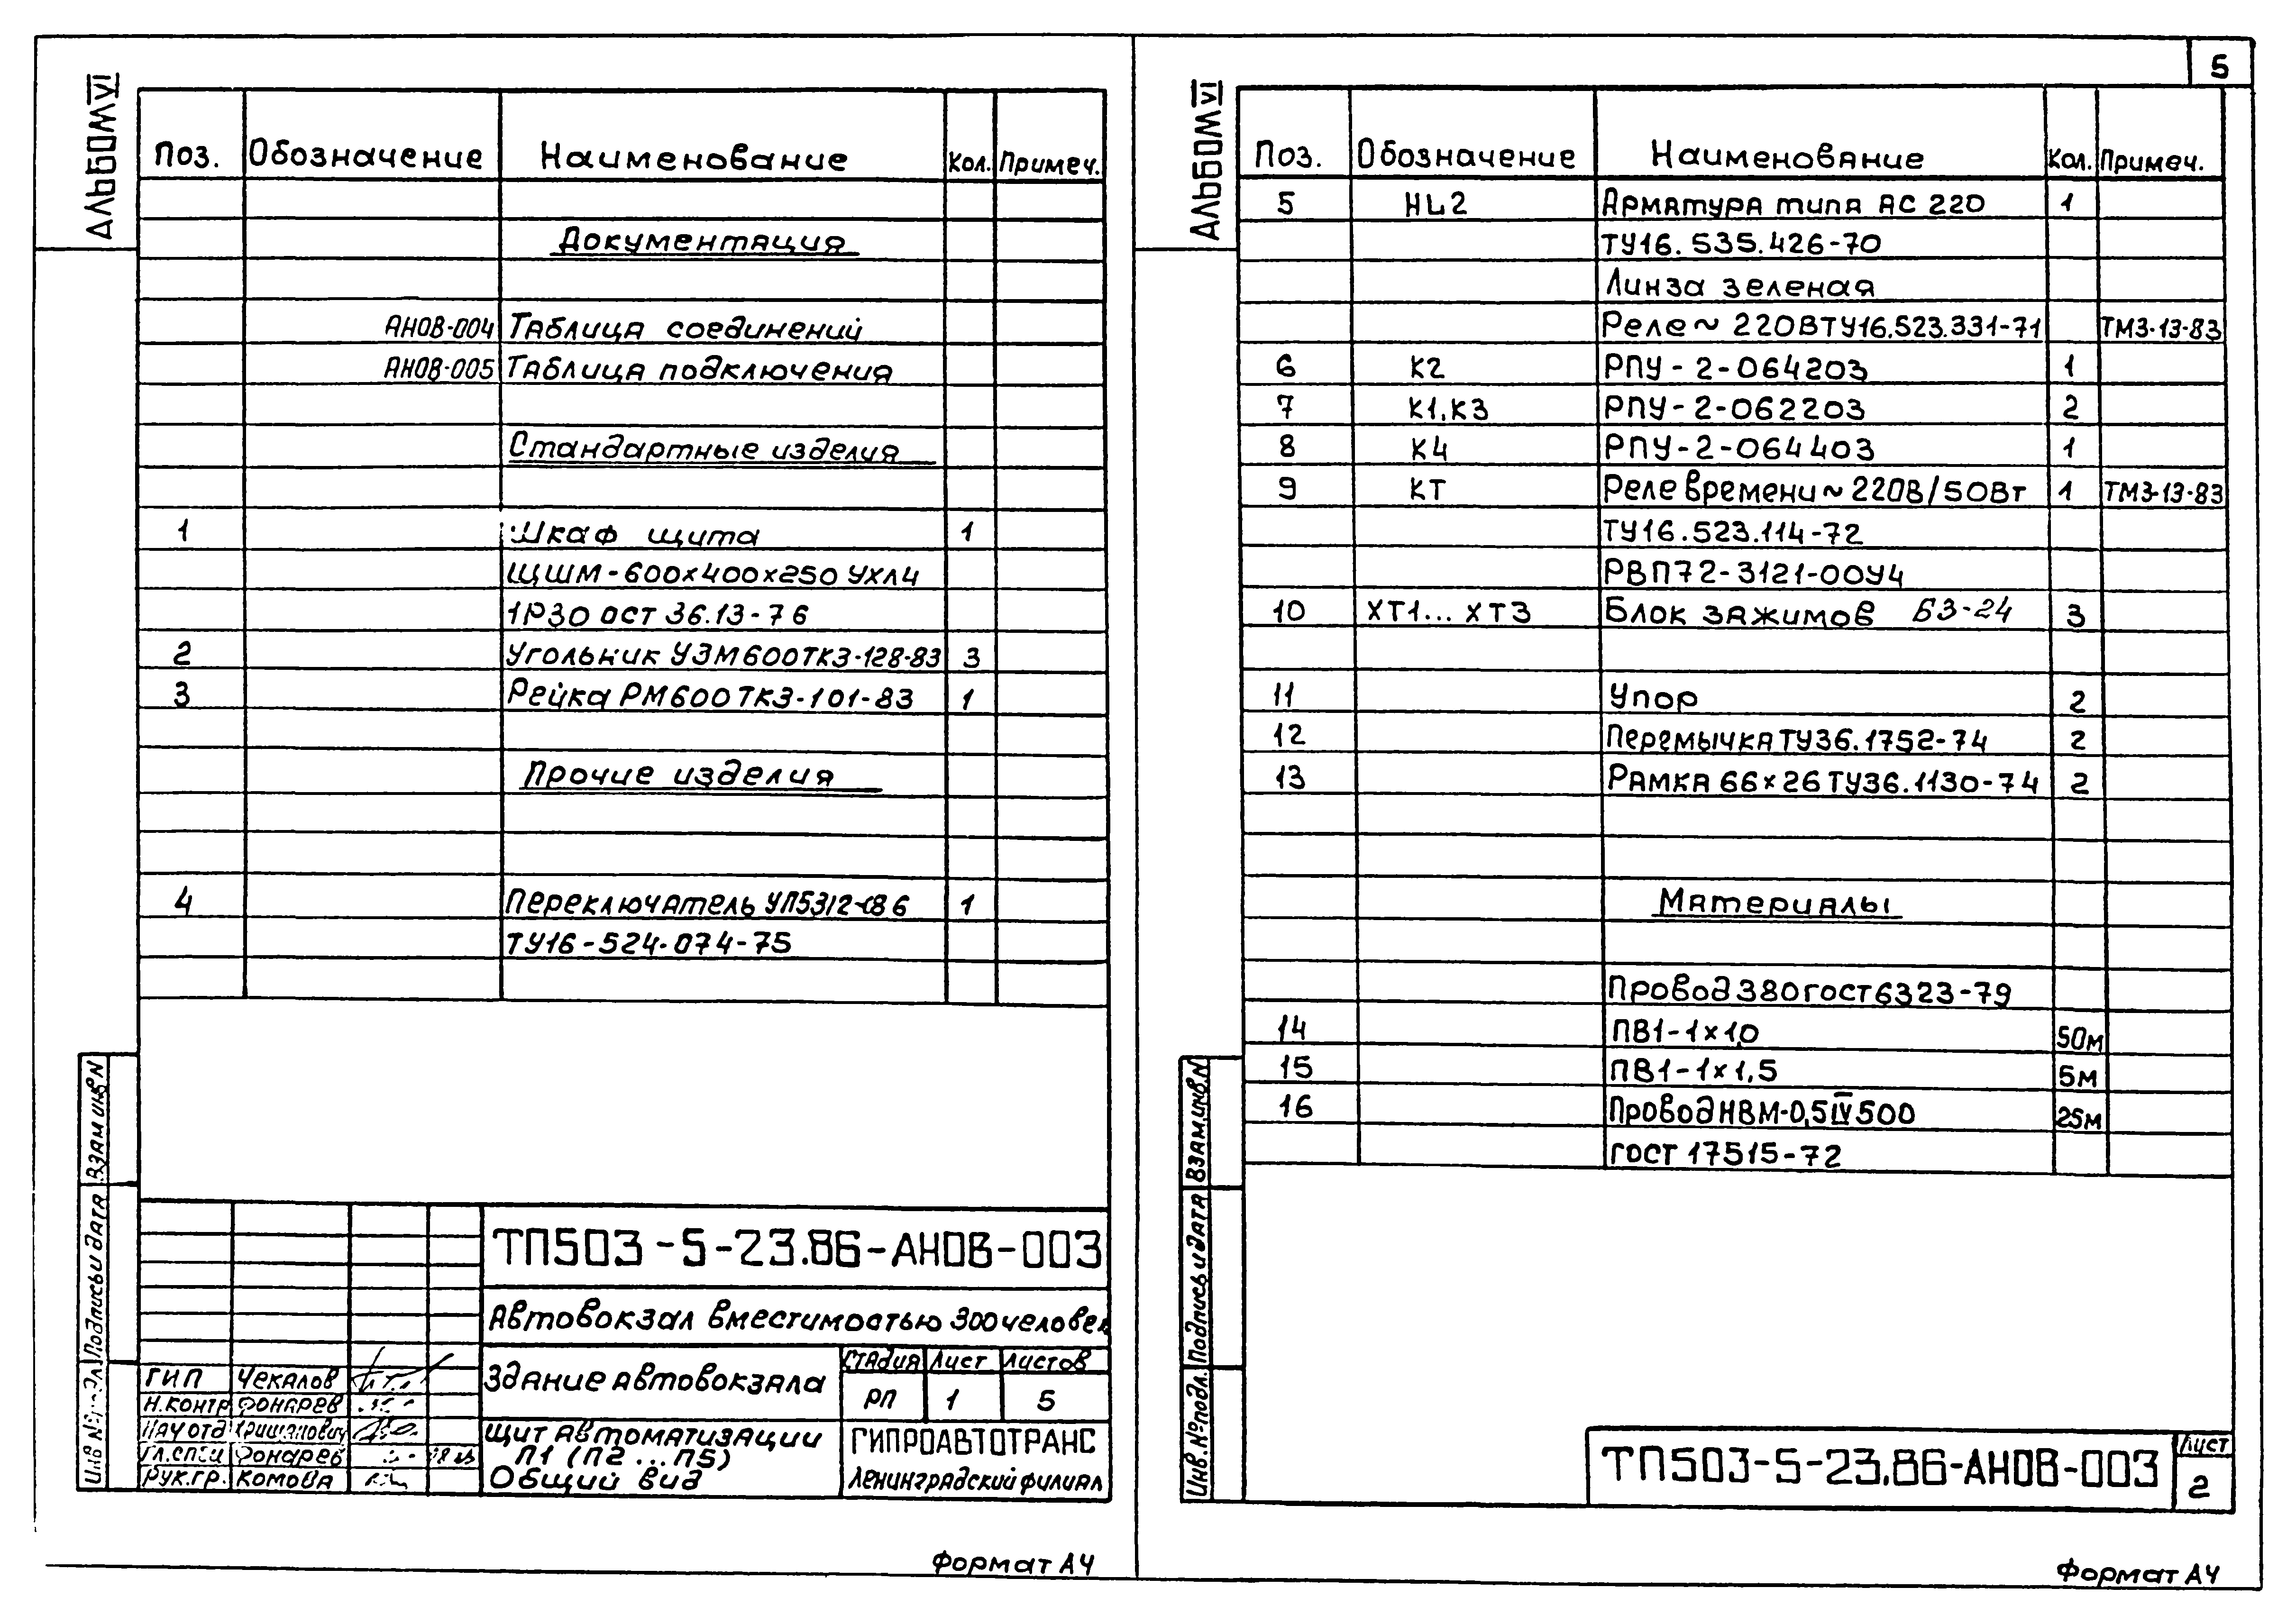 5
Альбом VI
Поз. Обозначение Наименование Кол. Примеч.
Документация
АНОВ-004 Таблица соединений
АНОВ-005 Таблица подключения
Стандартные изделия
1 Шкаф щита 1
ЩШМ-600х400х250 УХЛ4
1Р30 ОСТ 36.13-76
2 Угольник УЗМ600ТКЗ-128-83 3
3 Рейка РМ600ТКЗ-101-83 1
Прочие изделия
4 Переключатель УП5312-С86 1
ТУ16-524.074-75
Взам инв N
Подпись и дата
ТП503-5-23.86-АНОВ-003
Автовокзал вместимостью 300 человек
Здание автовокзала
Стадия Лист Листов
РП 1 5
ГИП Чекалов
Н.контр Фонарев
Нач отд
Гл.спец Фонарев
Рук.гр. Комова
Щит автоматизации
П1 (П2 ... П5)
Общий вид
ГИПРОАВТОТРАНС
Ленинградский филиал
Формат А4
Альбом VI
Поз. Обозначение Наименование Кол. Примеч.
5 HL2 Арматура типа АС 220 1
ТУ16.535.426-70
Линза зеленая
Реле ~ 220В ТУ16.523.331-71 ТМ3-13-83
6 К2 РПУ-2-064203 1
7 К1,К3 РПУ-2-062203 2
8 К4 РПУ-2-064403 1
9 КТ Реле времени ~ 220В/50Вт 1 ТМ3-13-83
ТУ16.523.114-72
РВП72-3121-00У4
10 ХТ1... ХТ3 Блок зажимов БЗ-24 3
11 Упор 2
12 Перемычка ТУ36.1752-74 2
13 Рамка 66×26 ТУ36.1130-74 2
Материалы
Провод 380 ГОСТ 6323-79
14 ПВ1-1×1,0 50м
15 ПВ1-1×1,5 5м
16 Провод НВМ-0,5 IV 500 25м
ГОСТ 17515-72
Взам.инв.N
Подпись и дата
Инв.№ подл.
ТП503-5-23.86-АНОВ-003
Лист
2
Формат А4